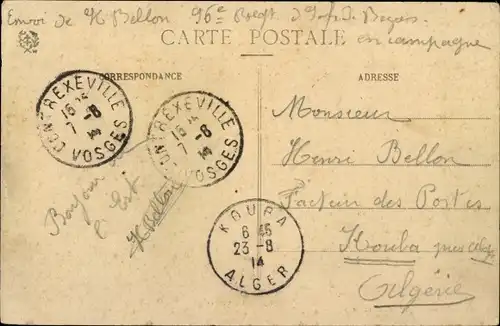 Envoi de H Bellon 96e Regt d'Inf. Beziers.
en campagne
CARTE POSTALE
CORRESPONDANCE
ADRESSE
CONTREXEVILLE
16 15
7 -8
14
VOSGES
CONTREXEVILLE
16 15
7 -8
14
VOSGES
Bonjour de
l'Est
HBellon
KOUBA
6 45
23 -8
14
ALGER
Monsieur
Henri Bellon
Facteur des Postes
Kouba près Alger
Algérie